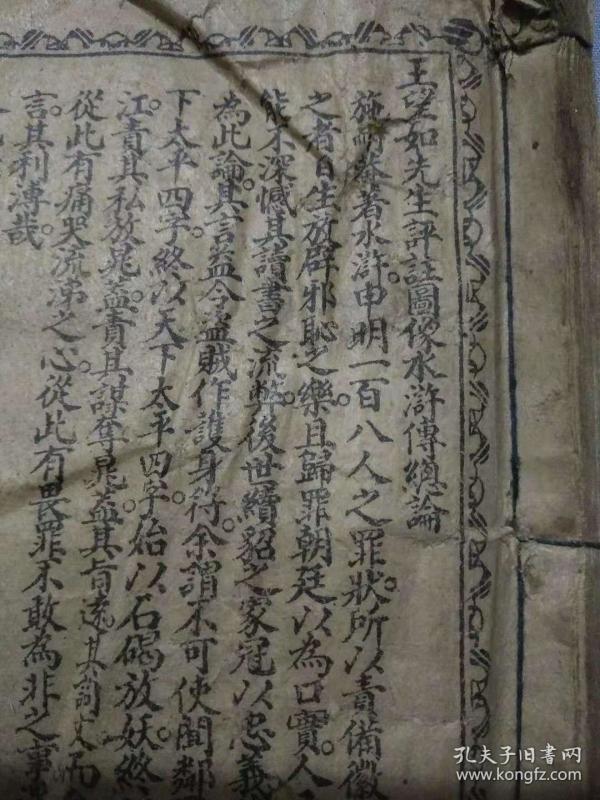 王望如先生評註圖像水滸傳總論
施耐菴著水滸。申明一百八人之罪狀。所以責備徽
之者自生放辟邪恥之樂。且歸罪朝廷以為口實。人
能不深憾其讀書之流弊。後世續貂之家冠以忠義
為此論。其言益令盜賊作護身符。余謂不可使閭鄰
下太平四字。終以天下太平四字。始以石碣放妖。終
江。責其私放晁蓋。責其謀奪晁蓋。其旨遠其詞文而
從此有痛哭流涕之心。從此有畏罪不敢為非之事
言其利溥哉。
孔夫子旧書网
www.kongfz.com